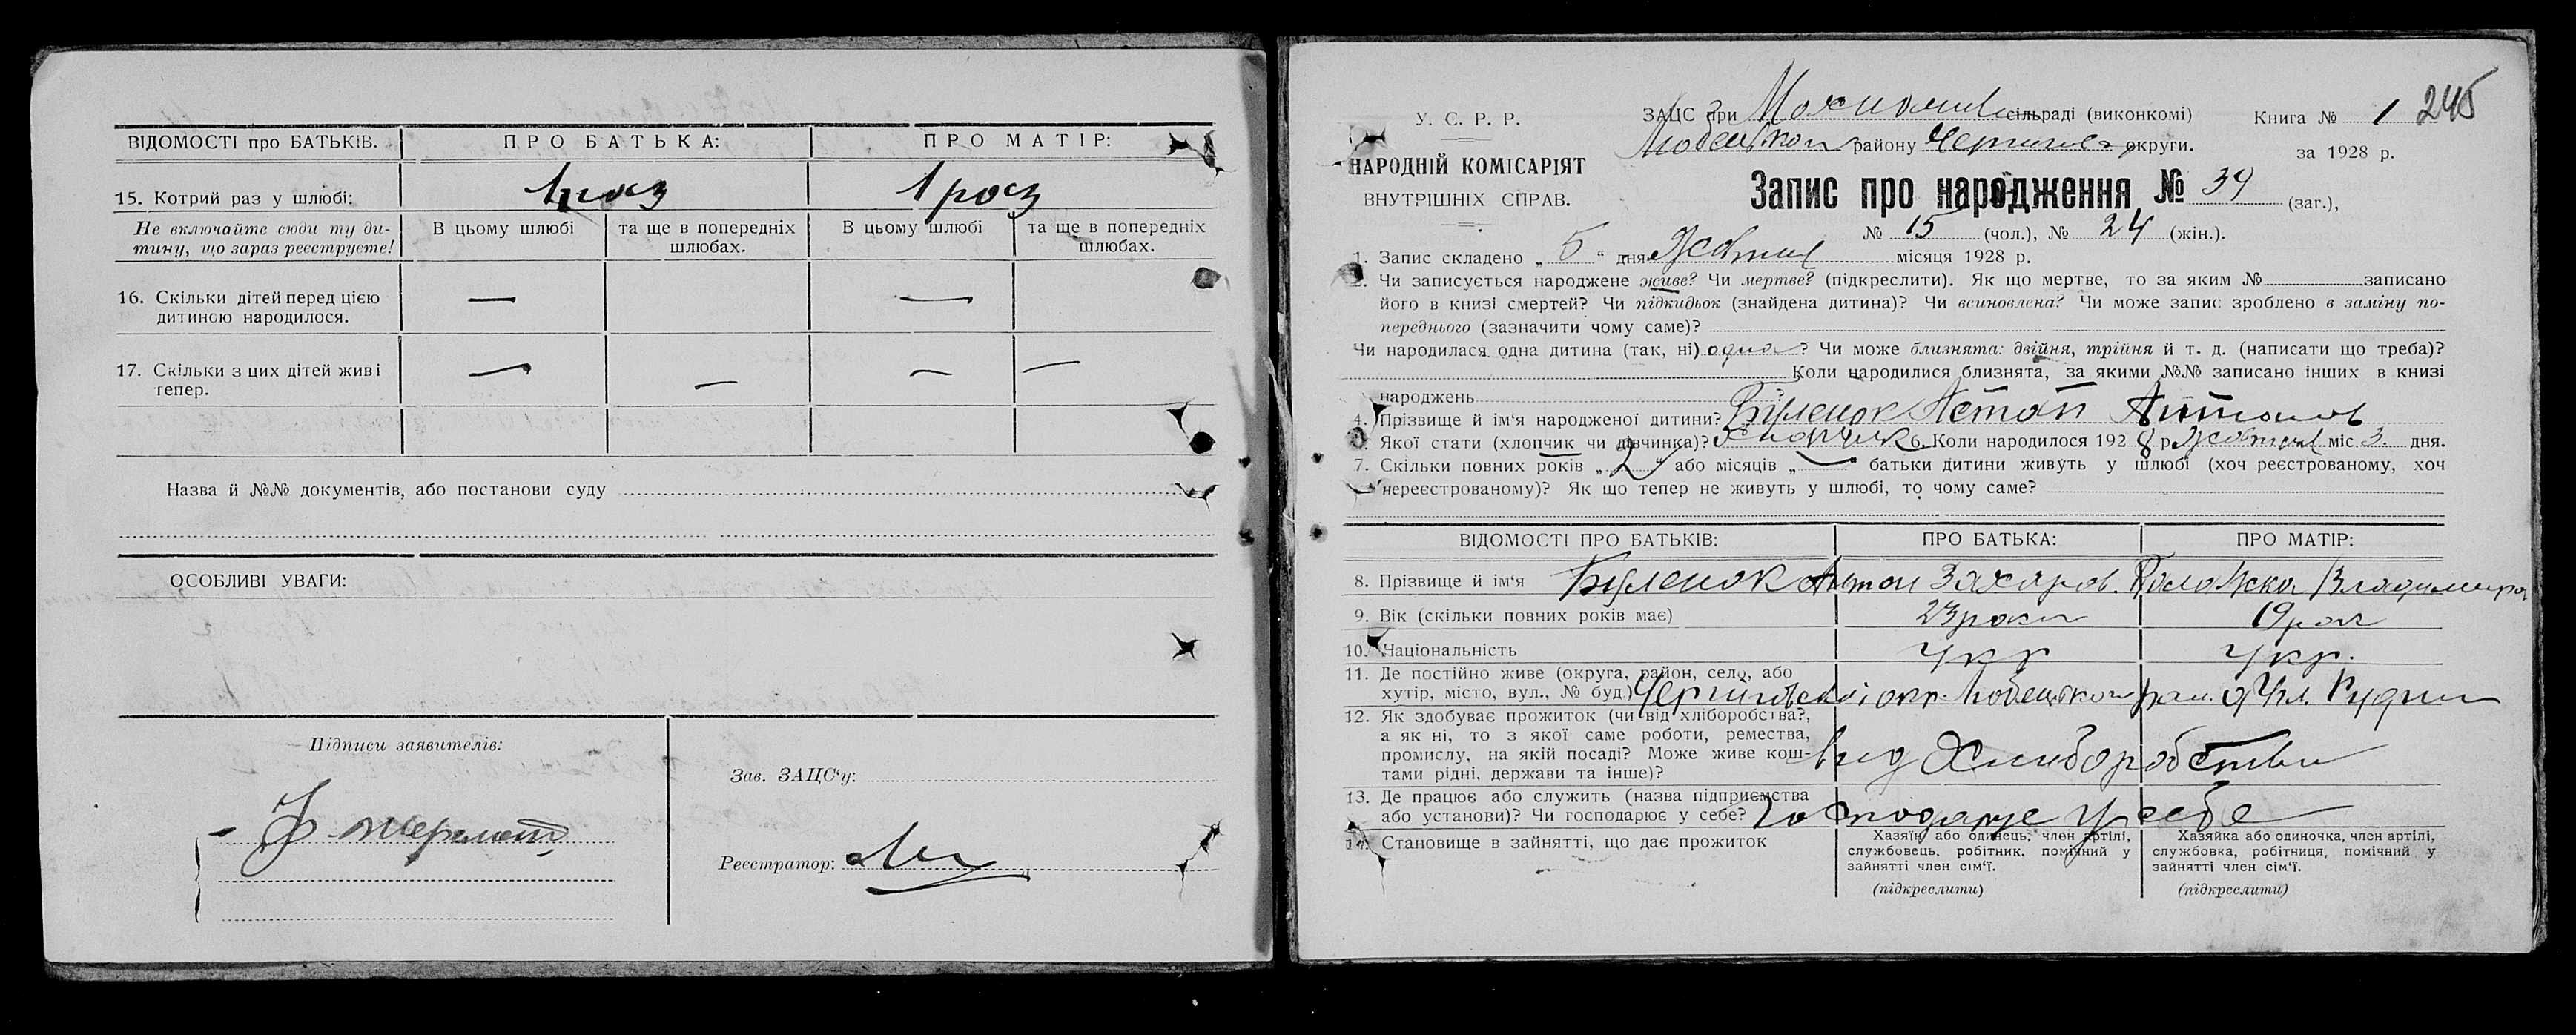 ВІДОМОСТІ про БАТЬКІВ. ПРО БАТЬКА: ПРО МАТІР:
15. Котрий раз у шлюбі: 1 раз 1 раз
Не включайте сюди ту ди-
тину, що зараз реєструєте!
В цьому шлюбі
та ще в попередніх
шлюбах.
В цьому шлюбі
та ще в попередніх
шлюбах.
16. Скільки дітей перед цією — —
дитиною народилося.
17. Скільки з цих дітей живі — — — —
тепер.
Назва й №№ документів, або постанови суду
ОСОБЛИВІ УВАГИ:
Підписи заявителів:
Зав. ЗАЦС'у:
Реєстратор:
У. С. Р. Р.
НАРОДНІЙ КОМІСАРІЯТ
ВНУТРІШНІХ СПРАВ.
ЗАЦС при сільраді (виконкомі)
Любецького району Чернигів округи.
Книга № 1 245
за 1928 р.
Запис про народження № 39 (заг.),
№ 15 (чол.), № 24 (жін.).
1. Запис складено „ 5 " дня Жовтня місяця 1928 р.
2. Чи записується народжене живе? Чи мертве? (підкреслити). Як що мертве, то за яким № записано
його в книзі смертей? Чи підкидьок (знайдена дитина)? Чи всиновлена? Чи може запис зроблено в заміну по-
переднього (зазначити чому саме)?
Чи народилася одна дитина (так, ні) одна? Чи може близнята: двійня, трійня й т. д. (написати що треба)?
Коли народилися близнята, за якими №№ записано інших в книзі
народжень
4. Прізвище й ім'я народженої дитини? Буленок Астап Антонов
Якої стати (хлопчик чи дівчинка)? Хлопчик 6. Коли народилося 1928 р. Жовтня міс. 3 дня.
7. Скільки повних років „ 2 " або місяців „ — " батьки дитини живуть у шлюбі (хоч реєстрованому, хоч
нереєстрованому)? Як що тепер не живуть у шлюбі, то чому саме?
ВІДОМОСТІ ПРО БАТЬКІВ: ПРО БАТЬКА: ПРО МАТІР:
8. Прізвище й ім'я Буленок Антон Захаров. Владимира
9. Вік (скільки повних років має) 23 роки 19 рок
10. Національність Укр Укр.
11. Де постійно живе (округа, район, село, або
хутір, місто, вул., № буд.) Чернігівської окр. Любецького рай.
12. Як здобуває прожиток (чи від хліборобства?,
а як ні, то з якої саме роботи, ремества,
промислу, на якій посаді? Може живе кош-
тами рідні, держави та інше)?
вид Хлиборобства
13. Де працює або служить (назва підприємства
або установи)? Чи господарює у себе? Господарює у себе
14. Становище в зайнятті, що дає прожиток
Хазяїн або одинець, член артілі,
службовець, робітник, помічний у
зайнятті член сім'ї.
(підкреслити)
Хазяйка або одиночка, член артілі,
службовка, робітниця, помічний у
зайнятті член сім'ї.
(підкреслити)